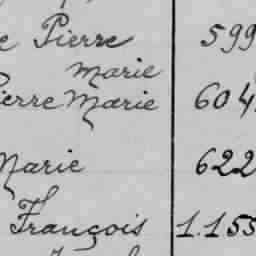 e Pierre 599
Marie
Pierre Marie 604
Marie 622
François 1.155